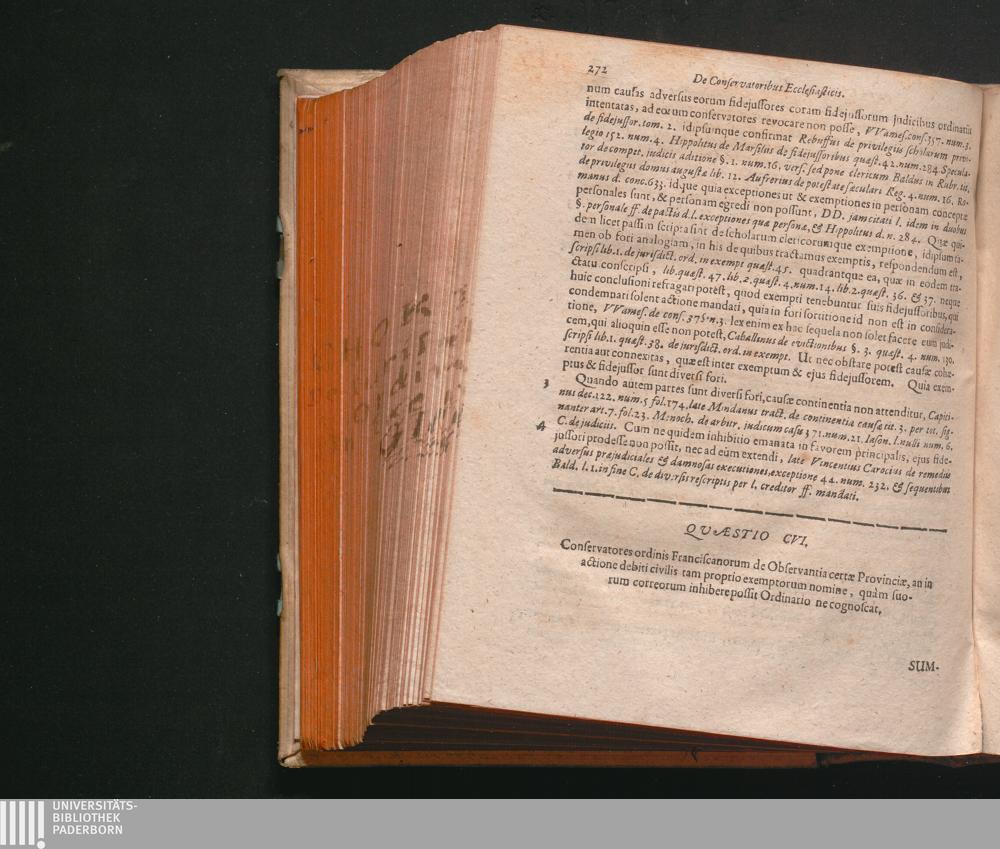 272
De Conservatoribus Ecclesiasticis.
num causas adversus eorum fidejussores coram fidejussorum judicibus ordinariis
intentatas, ad eorum conservatores revocare non posse, VVames. cons. 357. num. 3.
de fidejussor. tom. 2. idipsumque confirmat Rebuffus de privilegiis scholarum privi-
legio 152. num. 4. Hippolitus de Marsiliis de fidejussoribus quæst. 42. num. 284. Specula-
tor de compet. judicis aditione §. 1. num. 16. vers. sed pone clericum Baldus in Rubr. tit.
de privilegiis domus augustæ lib. 12. Aufrerius de potestate sæculari Reg. 4. num. 16. Ro-
manus d. conc. 633. idque quia exceptiones ut & exemptiones in personam conceptæ
personales sunt, & personam egredi non possunt, DD. jam citati l. idem in duobus
§. personale ff. de pactis d. l. exceptiones quæ personæ, & Hippolitus d. n. 284. Quæ qui-
dem licet passim scripta sint de scholarum clericorumque exemptione, idipsum ta-
men ob fori analogiam, in his de quibus tractamus exemptis, respondendum est,
scripsi lib. 1. de jurisdict. ord. in exempt quæst. 45. quadrantque ea, quæ in eodem tra-
ctatu conscripsi, lib. quæst. 47. lib. 2. quæst. 4. num. 14. lib. 2. quæst. 36. & 37. neque
huic conclusioni refragari potest, quod exempti tenebuntur suis fidejussoribus, qui
condemnati solent actione mandati, quia in fori sortitione id non est in considera-
tione, VVames. de cons. 375. n. 3. lex enim ex hac sequela non solet facere eum judi-
cem, qui alioquin esse non potest, Caballinus de evictionibus §. 3. quæst. 4. num. 130.
scripsi lib. 1. quæst. 38. de jurisdict. ord. in exempt. Ut nec obstare potest causæ cohæ-
rentia aut connexitas, quæ est inter exemptum & ejus fidejussorem. Quia exem-
ptus & fidejussor sunt diversi fori.
3 Quando autem partes sunt diversi fori, causæ continentia non attenditur, Capiti-
nus dec. 122. num. 5 fol. 174. late Mindanus tract. de continentia causæ tit. 3. per tot. sig-
nanter art. 7. fol. 23. Menoch. de arbitr. judicum casu 371. num. 21. Iason. l. nulli num. 6.
4 C. de judiciis. Cum ne quidem inhibitio emanata in favorem principalis, ejus fide-
jussori prodesse non possit, nec ad eum extendi, late Vincentius Carocius de remediis
adversus præjudiciales & damnosas executiones, exceptione 44. num. 232. & sequentibus
Bald. l. 1. in fine C. de diversis rescriptis per l. creditor ff. mandati.
QUÆSTIO CVI.
Conservatores ordinis Franciscanorum de Observantia certæ Provinciæ, an in
actione debiti civilis tam proprio exemptorum nomine, quàm suo-
rum correorum inhibere possit Ordinario ne cognoscat.
SUM-
UNIVERSITÄTS-
BIBLIOTHEK
PADERBORN